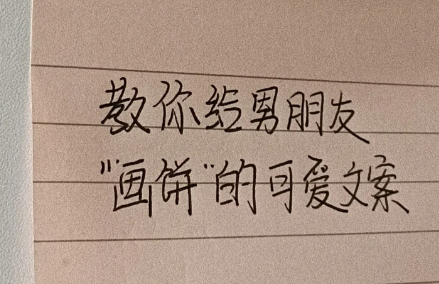 教你给男朋友
"画饼"的可爱文案